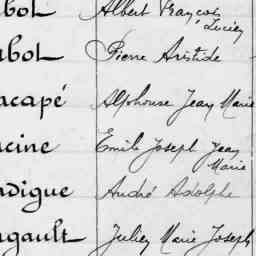 bot Albert François
Lucien
bot Pierre Aristide
acapé Alphonse Jean Marie
cine Emile Joseph Jean
Marie
digue André Adolphe
gault Julien Marie Joseph